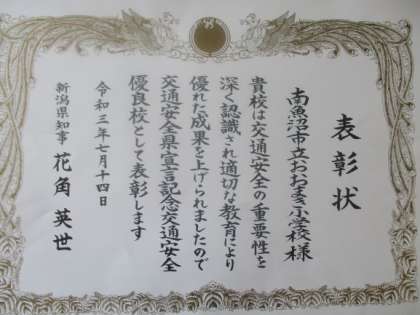 表彰状
南魚沼市立おおまき小学校様
貴校は交通安全の重要性を
深く認識され適切な教育により
優れた成果を上げられましたので
交通安全県宣言記念交通安全
優良校として表彰します
令和三年七月十四日
新潟県知事 花角英世